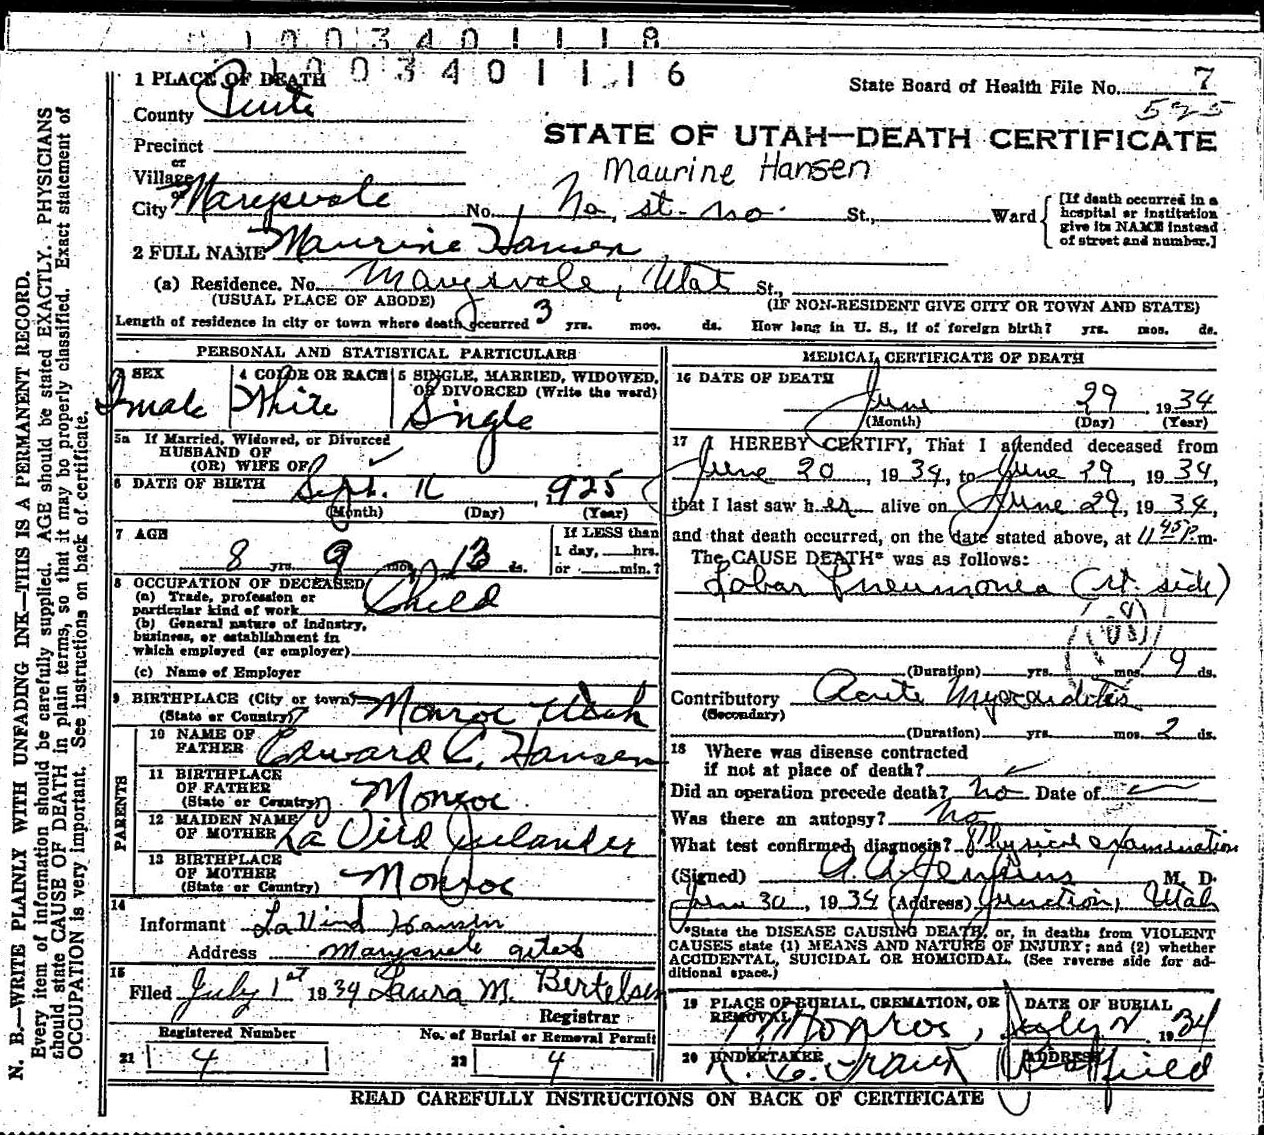 1 0 0 3 4 0 1 1 1 8
0 0 3 4 0 1 1 1 6
1 PLACE OF DEATH
State Board of Health File No. 7
525
County Piute
STATE OF UTAH—DEATH CERTIFICATE
Precinct
or
Maurine Hansen
Village
or
City Marysvale No. No. st. no. St., Ward
[If death occurred in a hospital or institution give its NAME instead of street and number.]
2 FULL NAME Maurine Hansen
(a) Residence. No. Marysvale, Utah St.,
(USUAL PLACE OF ABODE) (IF NON-RESIDENT GIVE CITY OR TOWN AND STATE)
Length of residence in city or town where death occurred 3 yrs. mos. ds. How long in U. S., if of foreign birth? yrs. mos. ds.
PERSONAL AND STATISTICAL PARTICULARS
3 SEX 4 COLOR OR RACE 5 SINGLE, MARRIED, WIDOWED,
OR DIVORCED (Write the word)
Female White Single
5a If Married, Widowed, or Divorced
HUSBAND OF
(OR) WIFE OF
6 DATE OF BIRTH Sept. 16, 1925
(Month) (Day) (Year)
7 AGE If LESS than
8 yrs. 9 mos. 13 ds. 1 day, hrs.
or min.?
8 OCCUPATION OF DECEASED
(a) Trade, profession or
particular kind of work Child
(b) General nature of industry,
business, or establishment in
which employed (or employer)
(c) Name of Employer
9 BIRTHPLACE (City or town) Monroe Utah
(State or Country)
PARENTS
10 NAME OF
FATHER Edward C. Hansen
11 BIRTHPLACE
OF FATHER
(State or Country) Monroe
12 MAIDEN NAME
OF MOTHER La Vird Julander
13 BIRTHPLACE
OF MOTHER
(State or Country) Monroe
14
Informant LaVird Hansen
Address Marysvale
15
Filed July 1st 1934 Laura M. Bertelsen
Registrar
Registered Number No. of Burial or Removal Permit
21 4 22 4
MEDICAL CERTIFICATE OF DEATH
16 DATE OF DEATH
June 29, 1934
(Month) (Day) (Year)
17 I HEREBY CERTIFY, That I attended deceased from
June 20, 1934, to June 29, 1934,
that I last saw her alive on June 29, 1934,
and that death occurred, on the date stated above, at 11 45 P.m.
The CAUSE DEATH* was as follows:
Lobar Pneumonea (rt. side)
(Duration) yrs. mos. 9 ds.
Contributory Acute Myocarditis
(Secondary)
(Duration) yrs. mos. 2 ds.
18 Where was disease contracted
if not at place of death?
Did an operation precede death? No Date of
Was there an autopsy? No
What test confirmed diagnosis? Physical examination
(Signed) M. D.
June 30, 1934 (Address) Junction, Utah
*State the DISEASE CAUSING DEATH, or, in deaths from VIOLENT
CAUSES state (1) MEANS AND NATURE OF INJURY; and (2) whether
ACCIDENTAL, SUICIDAL OR HOMICIDAL. (See reverse side for ad-
ditional space.)
19 PLACE OF BURIAL, CREMATION, OR DATE OF BURIAL
REMOVAL
Monroe, July 1934
20 UNDERTAKER ADDRESS
Richfield
READ CAREFULLY INSTRUCTIONS ON BACK OF CERTIFICATE
N. B.—WRITE PLAINLY WITH UNFADING INK—THIS IS A PERMANENT RECORD.
Every item of information should be carefully supplied. AGE should be stated EXACTLY. PHYSICIANS
should state CAUSE OF DEATH in plain terms, so that it may be properly classified. Exact statement of
OCCUPATION is very important. See instructions on back of certificate.